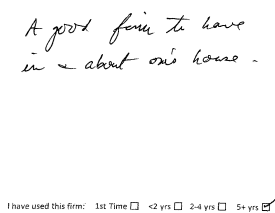 A good firm to have
in & about one's house.
I have used this firm: 1st Time ☐ <2 yrs ☐ 2-4 yrs ☐ 5+ yrs ☑